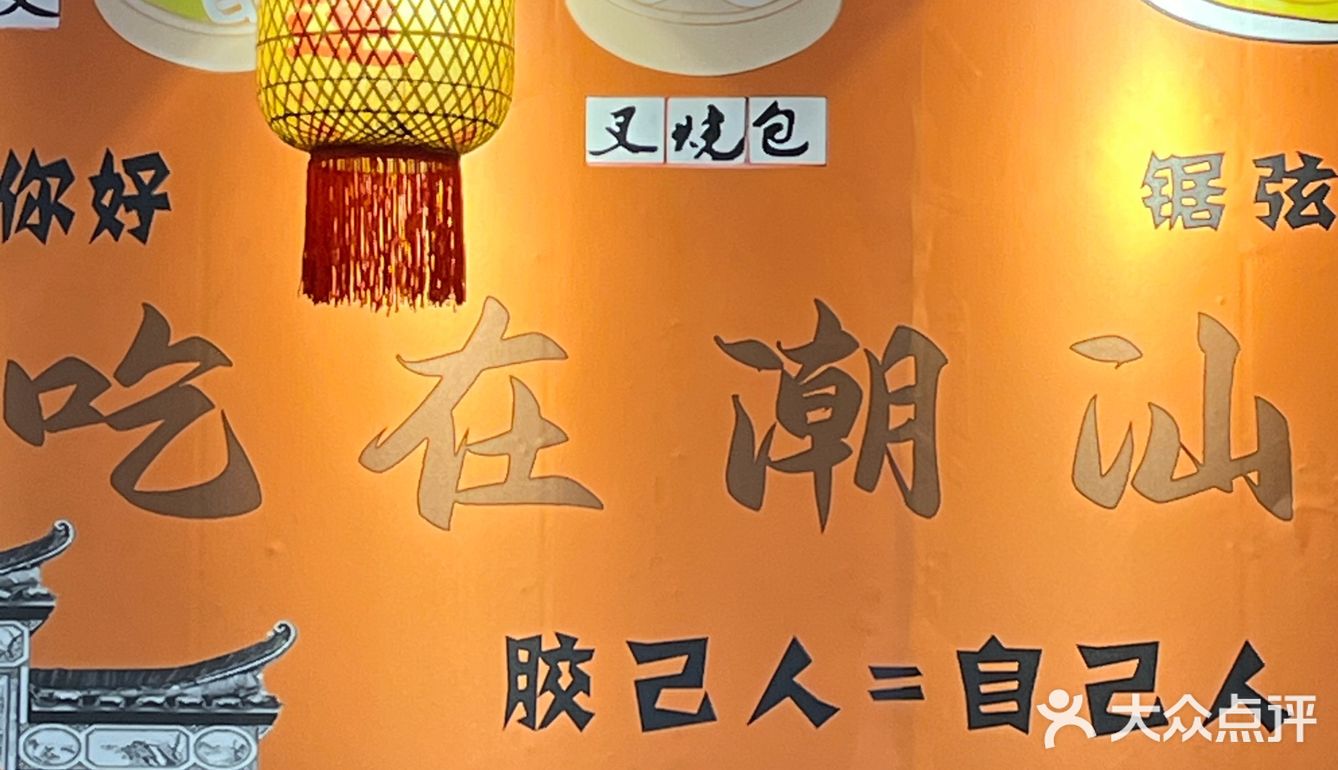 叉烧包
你好
锯弦
吃在潮汕
胶己人=自己人
大众点评